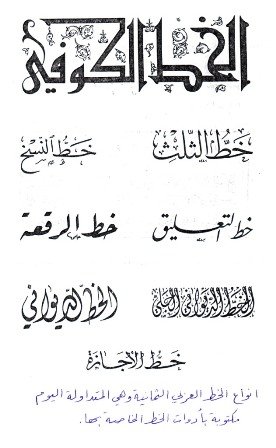 الخط الكوفي
خَطُّ الثُّلُثِ
خَطُّ النَّسْخِ
خط التعليق
خط الرقعة
الخط الديواني الجلي
الخط الديواني
خط الاجازة
انواع الخط العربي الثمانية وهي المتداولة اليوم
مكتوبة بأدوات الخط الخاصة بها.